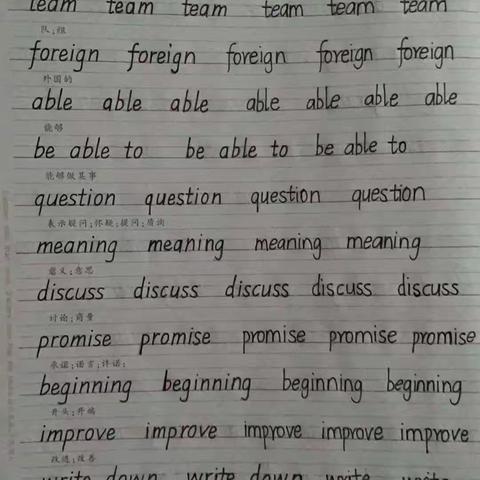 team team team team team team
队;组
foreign foreign foreign foreign foreign
外国的
able able able able able able able
能够
be able to be able to be able to
能够做某事
question question question question
表示疑问;怀疑;提问;质询
meaning meaning meaning meaning
意义;意思
discuss discuss discuss discuss discuss
讨论;商量
promise promise promise promise promise
承诺;诺言;许诺;
beginning beginning beginning beginning
开头;开端
improve improve improve improve improve
改进;改善
write down write down write write